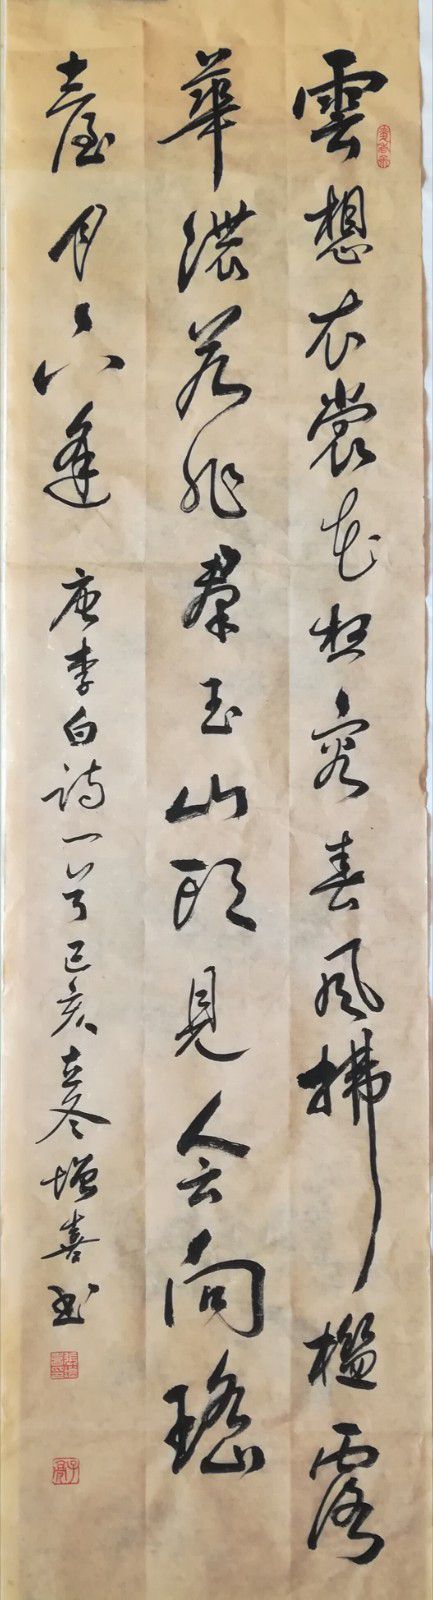 雲想衣裳花想容春風拂檻露
華濃若非羣玉山頭見會向瑤
臺月下逢 唐李白詩一首己亥立冬增喜書